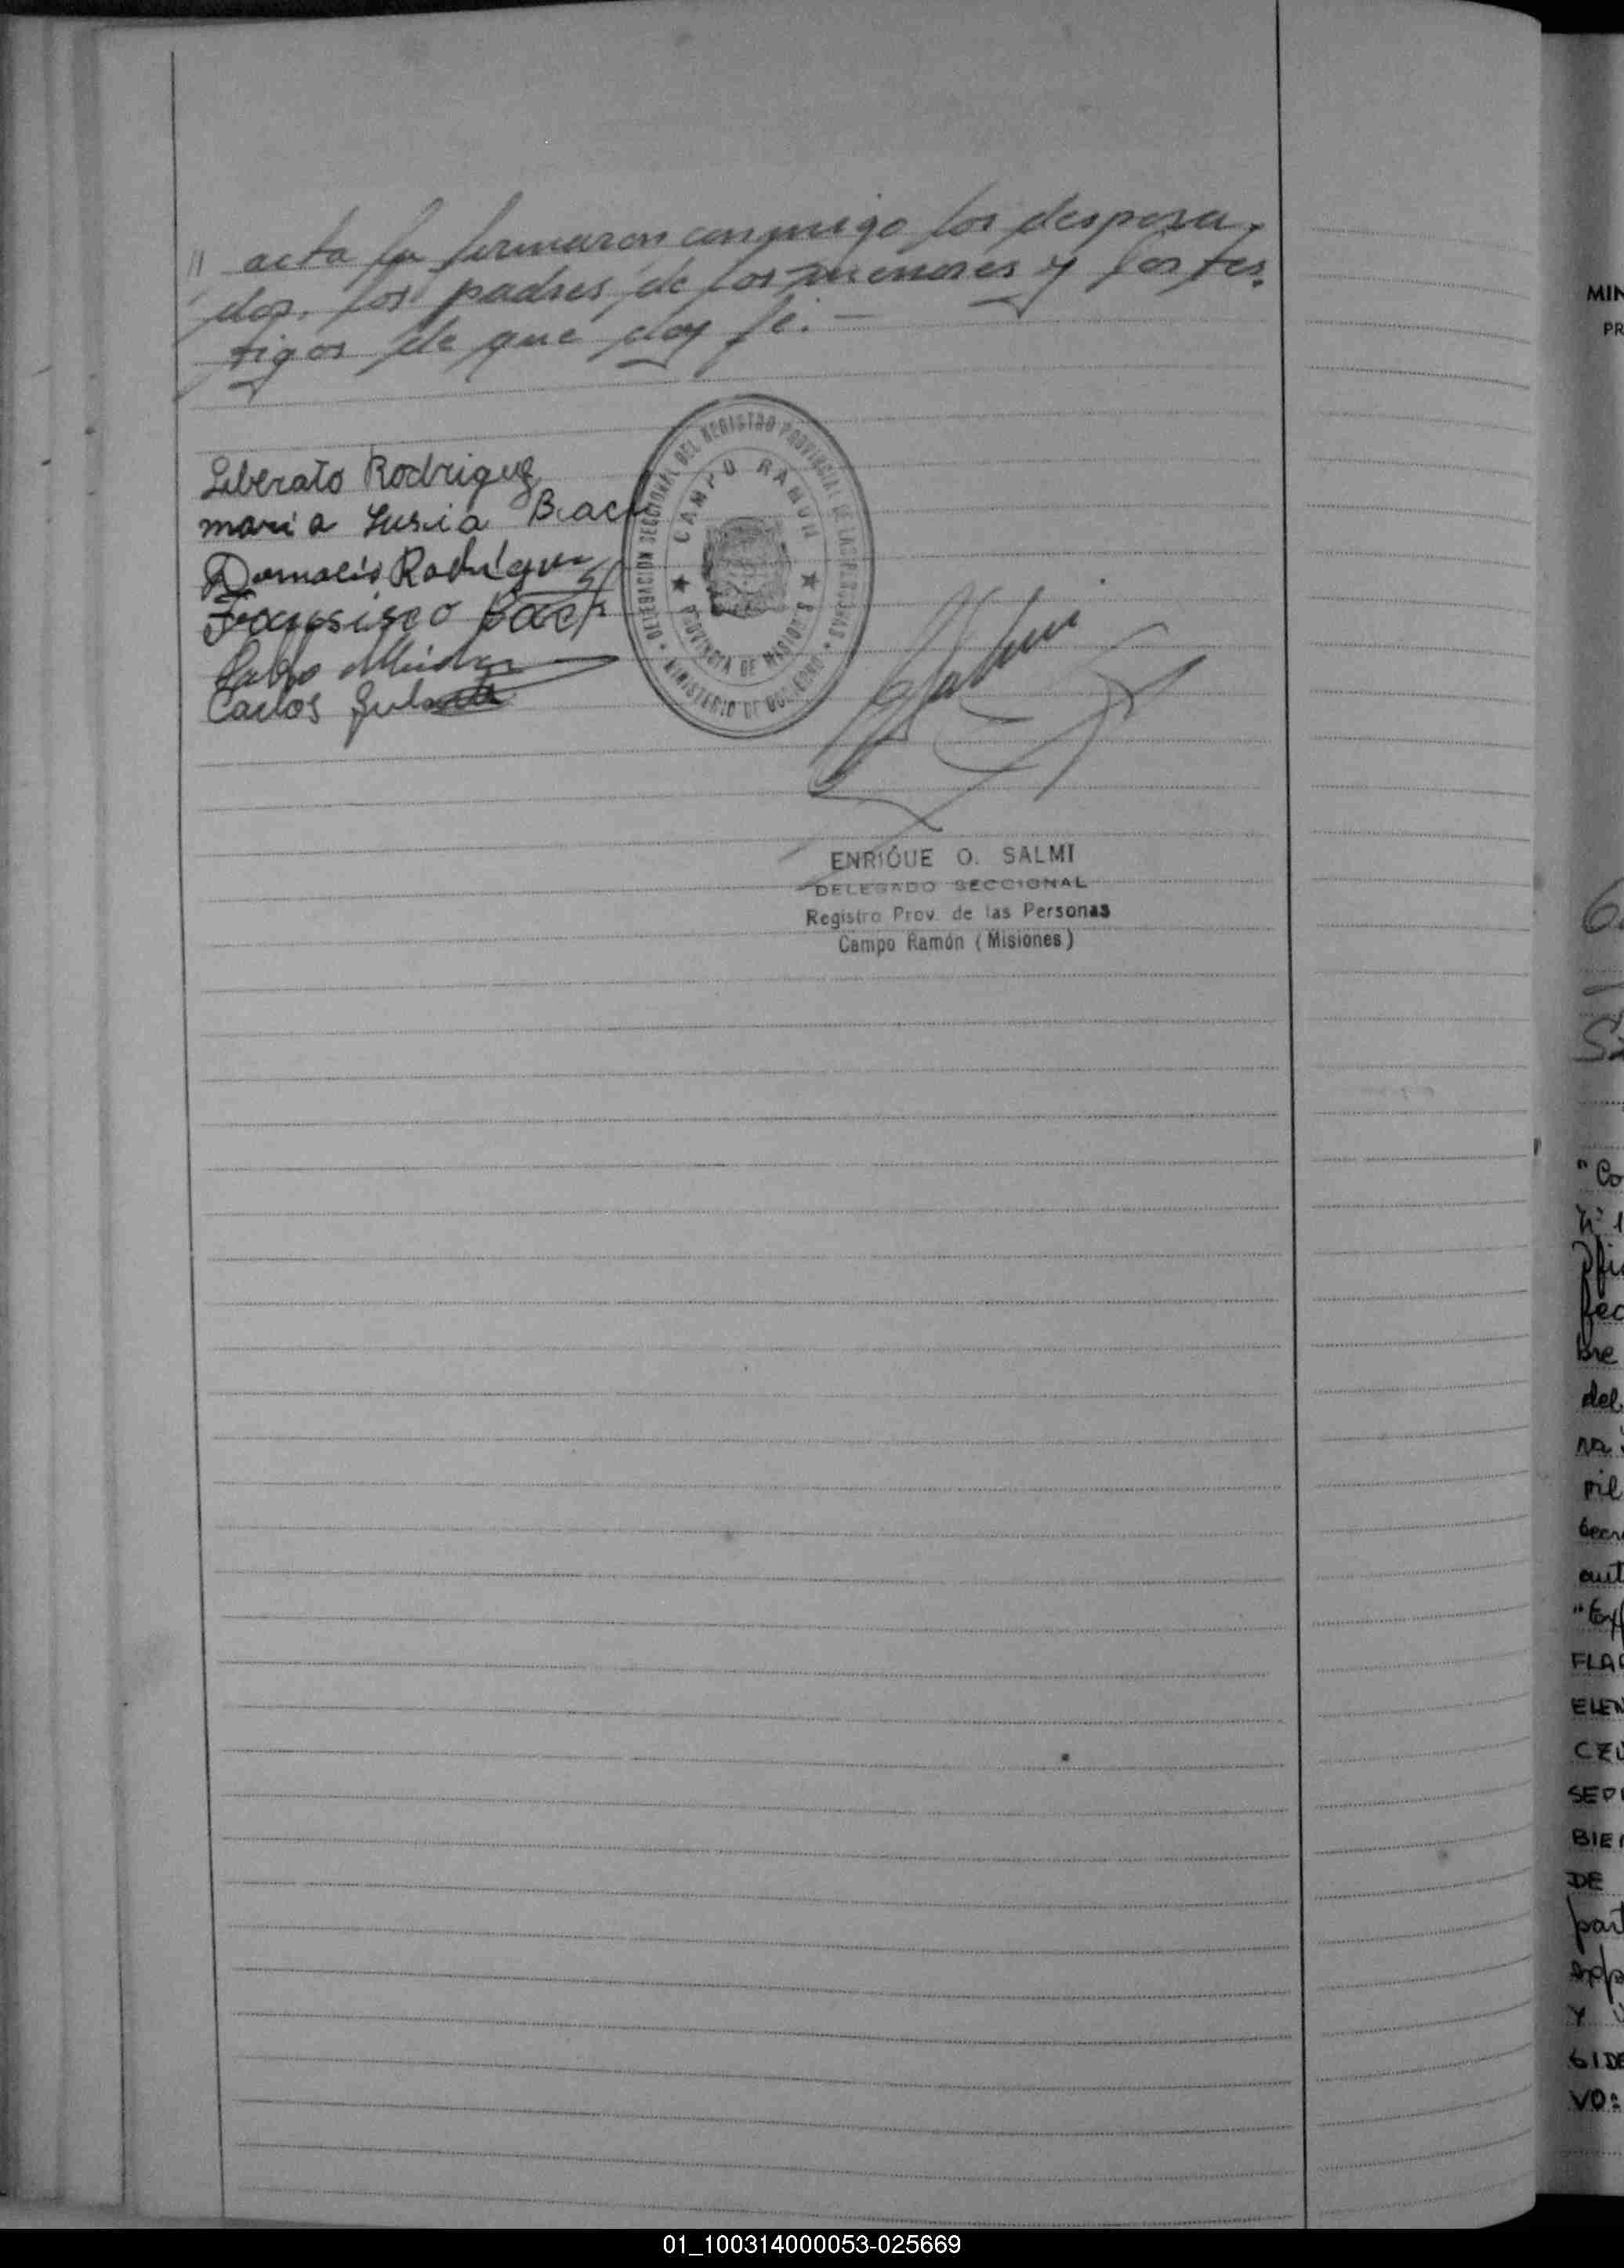 // acta la firmaron conmigo los desposa-
dos, los padres de los menores y los tes-
tigos de que doy fé. —
Liberato Rodriguez
maria Lusia Bach
Rodriguez
Fransisco Bach
Carlos
DELEGACION SECCIONAL DEL REGISTRO PROVINCIAL DE LAS PERSONAS
MINISTERIO DE GOBIERNO
CAMPO RAMON
PROVINCIA DE MISIONES
ENRIQUE O. SALMI
DELEGADO SECCIONAL
Registro Prov. de las Personas
Campo Ramón (Misiones)
MIN
PR
"Co
Nº 1
Ofi
fec
bre
del
na
mil
aut
FLA
ELEN
CZU
SEP
BIE
DE
part
Y
VO:
01_100314000053-025669